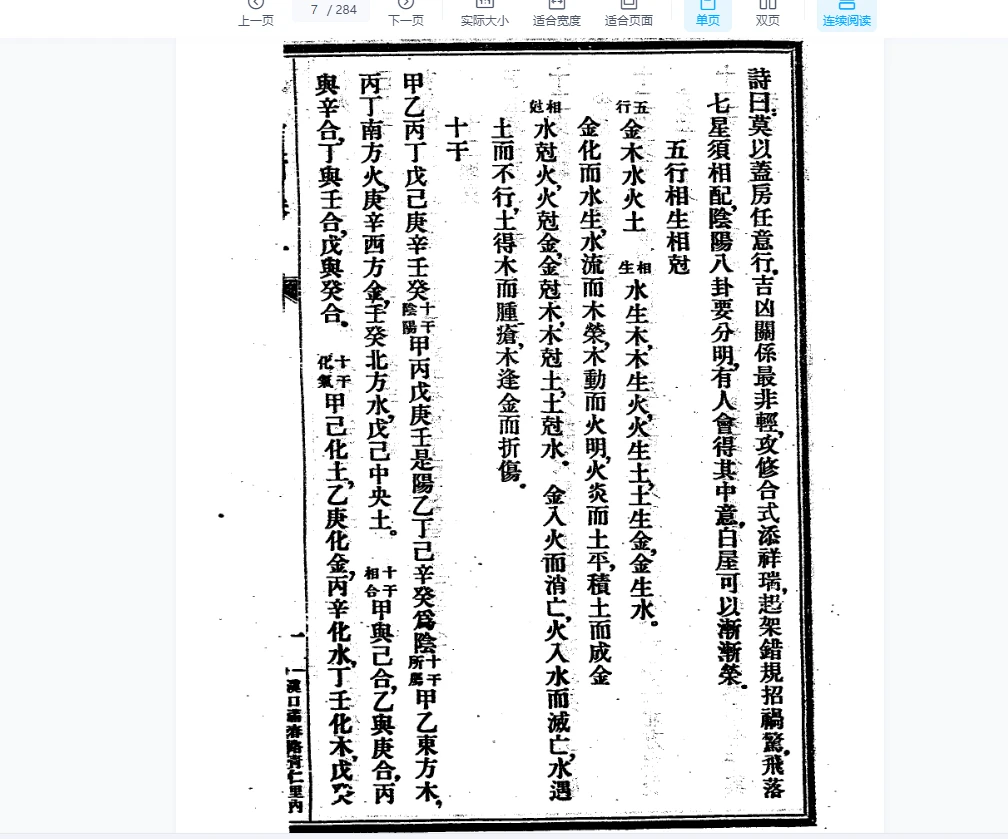 上一页
7 / 284
下一页
实际大小
适合宽度
适合页面
单页
双页
连续阅读
詩曰莫以蓋房任意行吉凶關係最非輕攻修合式添祥瑞起架錯規招禍驚飛落
七星須相配陰陽八卦要分明有人會得其中意白屋可以漸漸榮
五行相生相尅
五行 金木水火土 相生 水生木木生火火生土土生金金生水
金化而水生水流而木榮木動而火明火炎而土平積土而成金
相尅 水尅火火尅金金尅木木尅土土尅水 金入火而消亡火入水而滅亡水遇
土而不行土得木而腫瘡木逢金而折傷
十干
甲乙丙丁戊己庚辛壬癸 十干陰陽 甲丙戊庚壬是陽乙丁己辛癸爲陰 十干所屬 甲乙東方木
丙丁南方火庚辛西方金壬癸北方水戊己中央土 十干相合 甲與己合乙與庚合丙
與辛合丁與壬合戊與癸合 十干化氣 甲己化土乙庚化金丙辛化水丁壬化木戊癸
一
漢口
路青仁里內